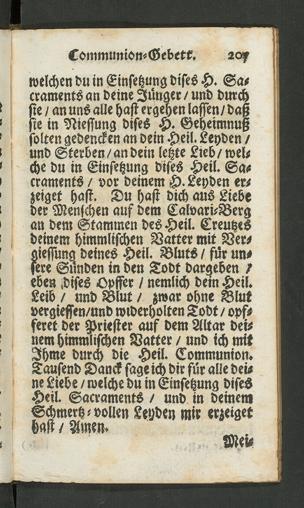 Communion-Gebett. 207
welchen du in Einsetzung dises H. Sa-
craments an deine Jünger / und durch
sie / an uns alle hast ergehen lassen / daß
sie in Niessung dises H. Geheimnuß
solten gedencken an dein Heil. Leyden /
und Sterben / an dein letzte Lieb / wel-
che du in Einsetzung dises Heil. Sa-
craments / vor deinem H. Leyden er-
zeiget hast. Du hast dich aus Liebe
der Menschen auf dem Calvari-Berg
an dem Stammen des Heil. Creutzes
deinem himmlischen Vatter mit Ver-
giessung deines Heil. Bluts / für un-
sere Sünden in den Todt dargeben /
eben dises Opffer / nemlich dein Heil.
Leib / und Blut / zwar ohne Blut
vergiessen / und widerholten Todt / opf-
feret der Priester auf dem Altar dei-
nem himmlischen Vatter / und ich mit
Ihme durch die Heil. Communion.
Tausend Danck sage ich dir für alle dei-
ne Liebe / welche du in Einsetzung dises
Heil. Sacraments / und in deinem
Schmertz-vollen Leyden mir erzeiget
hast / Amen.
Mei-